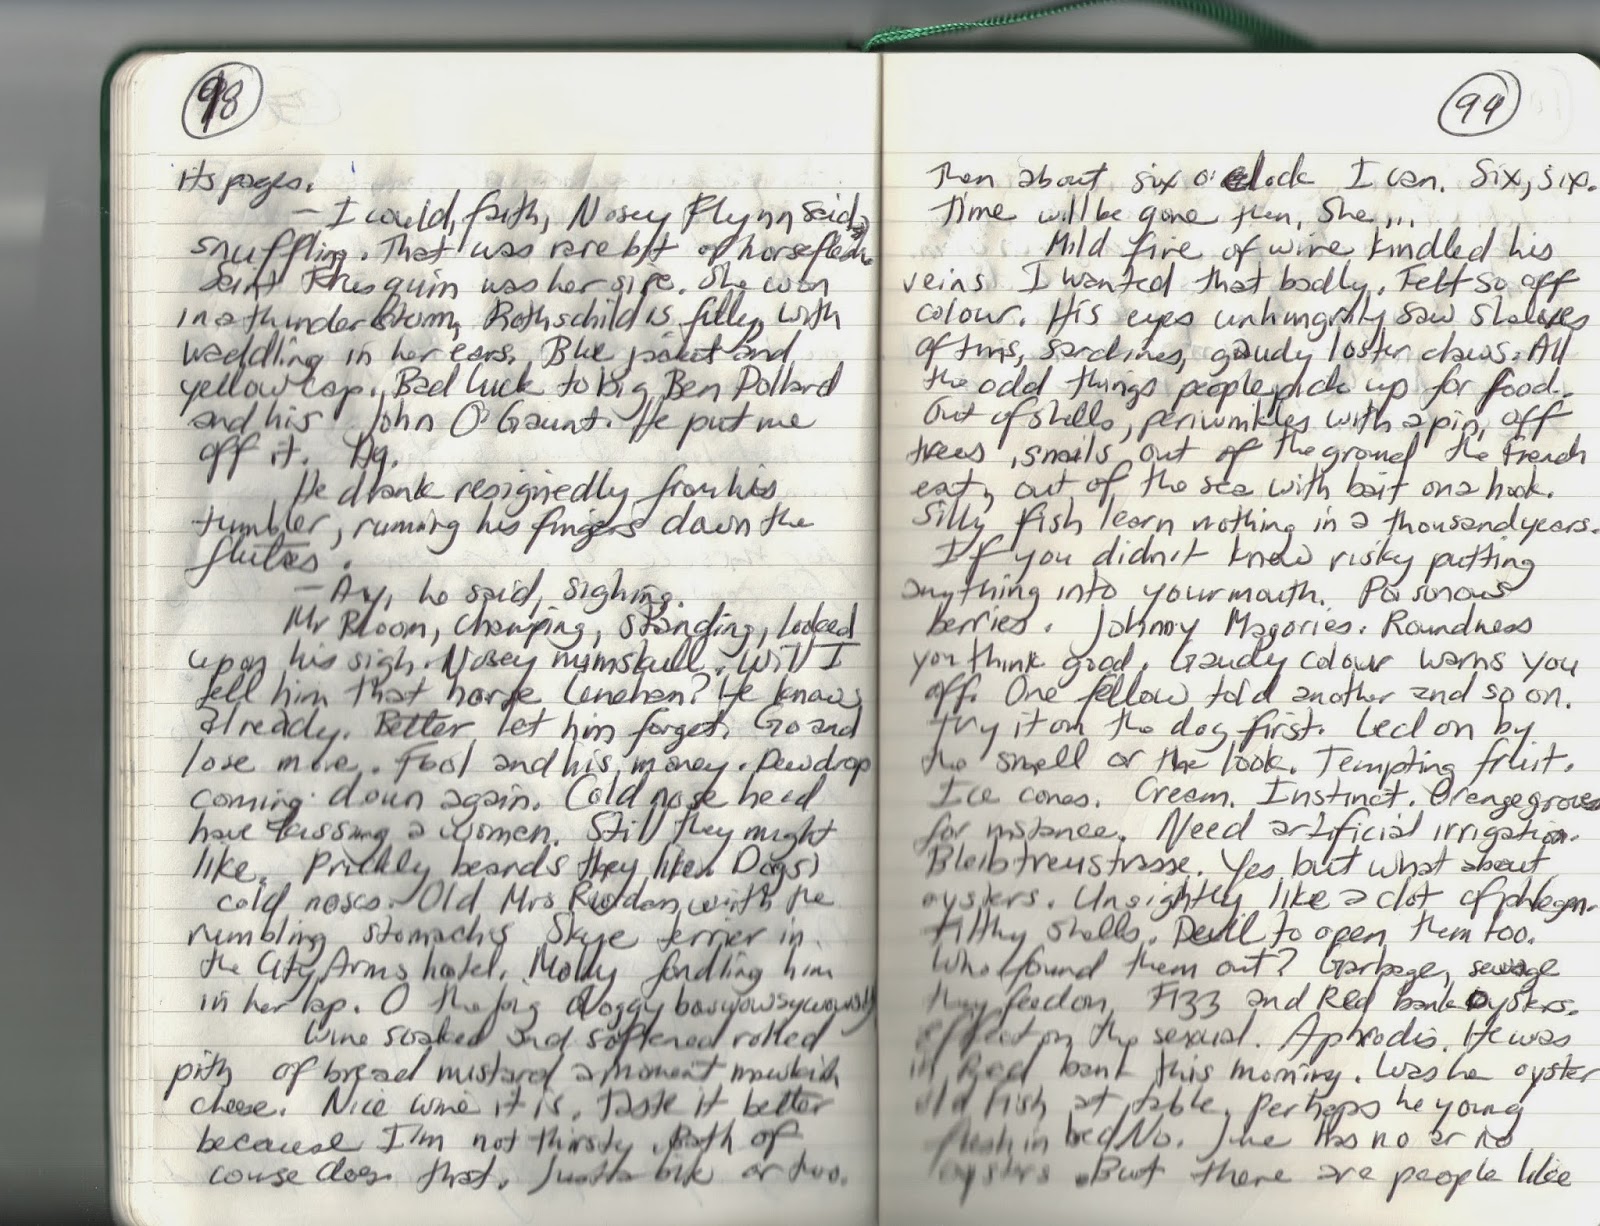 98
its pages.
– I could, faith, Nosey Flynn said,
snuffling. That was rare bit of horseflesh.
Saint Frusquin was her sire. She won
in a thunderstorm, Rothschild's filly, with
waddling in her ears. Blue jacket and
yellow cap. Bad luck to big Ben Dollard
and his John O'Gaunt. He put me
off it. Ay.
He drank resignedly from his
tumbler, running his fingers down the
flutes.
– Ay, he said, sighing.
Mr Bloom, champing, standing, looked
upon his sigh. Nosey numskull. Will I
tell him that horse Lenehan? He knows
already. Better let him forget. Go and
lose more. Fool and his money. Dewdrop
coming down again. Cold nose he'd
have kissing a women. Still they might
like. Prickly beards they like. Dogs'
cold noses. Old Mrs Riordan with the
rumbling stomach's Skye terrier in
the City Arms hotel. Molly fondling him
in her lap. O the big doggy bowwowsywowsy!
Wine soaked and softened rolled
pith of bread mustard a moment mawkish
cheese. Nice wine it is. Taste it better
because I'm not thirsty. Bath of
course does that. Just a bite or two.
99
Then about six o'clock I can. Six, six.
Time will be gone then. She...
Mild fire of wine kindled his
veins. I wanted that badly. Felt so off
colour. His eyes unhungrily saw shelves
of tins, sardines, gaudy loster claws. All
the odd things people pick up for food.
Out of shells, periwinkles with a pin, off
trees, snails out of the ground the French
eat, out of the sea with bait on a hook.
Silly fish learn nothing in a thousand years.
If you didn't know risky putting
anything into your mouth. Poisonous
berries. Johnny Magories. Roundness
you think good. Gaudy colour warns you
off. One fellow told another and so on.
Try it on the dog first. Led on by
the smell or the look. Tempting fruit.
Ice cones. Cream. Instinct. Orangegroves
for instance. Need artificial irrigation.
Bleibtreustrasse. Yes but what about
oysters. Unsightly like a clot of phlegm.
Filthy shells. Devil to open them too.
Who found them out? Garbage, sewage
they feed on. Fizz and Red bank oysters.
Effect on the sexual. Aphrodis. He was
in Red bank this morning. Was he oyster
old fish at table. Perhaps he young
flesh in bed No. June has no ar no
oysters. But there are people like